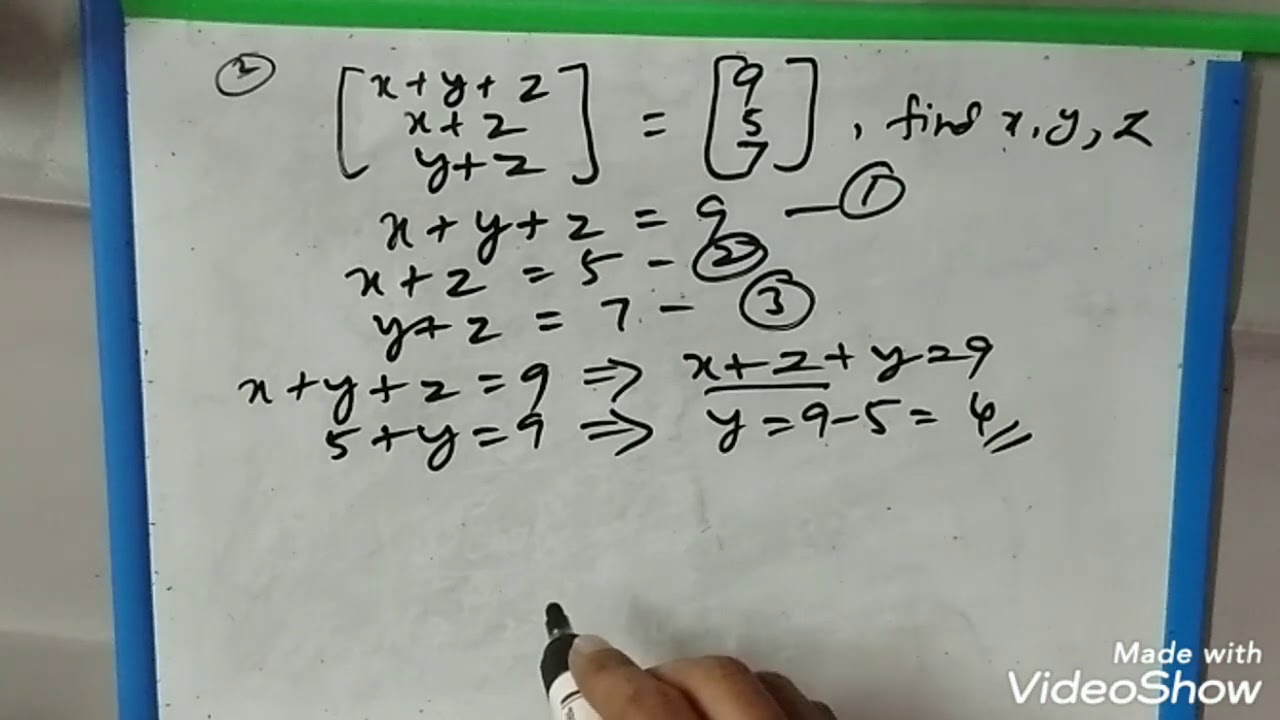 ② [x+y+z
x+z
y+z] = [9
5
7], find x, y, z
x+y+z = 9 — ①
x+z = 5 - ②
y+z = 7 - ③
x+y+z=9 ⇒ x+z+y=9
5+y=9 ⇒ y=9-5=4//
Made with
VideoShow